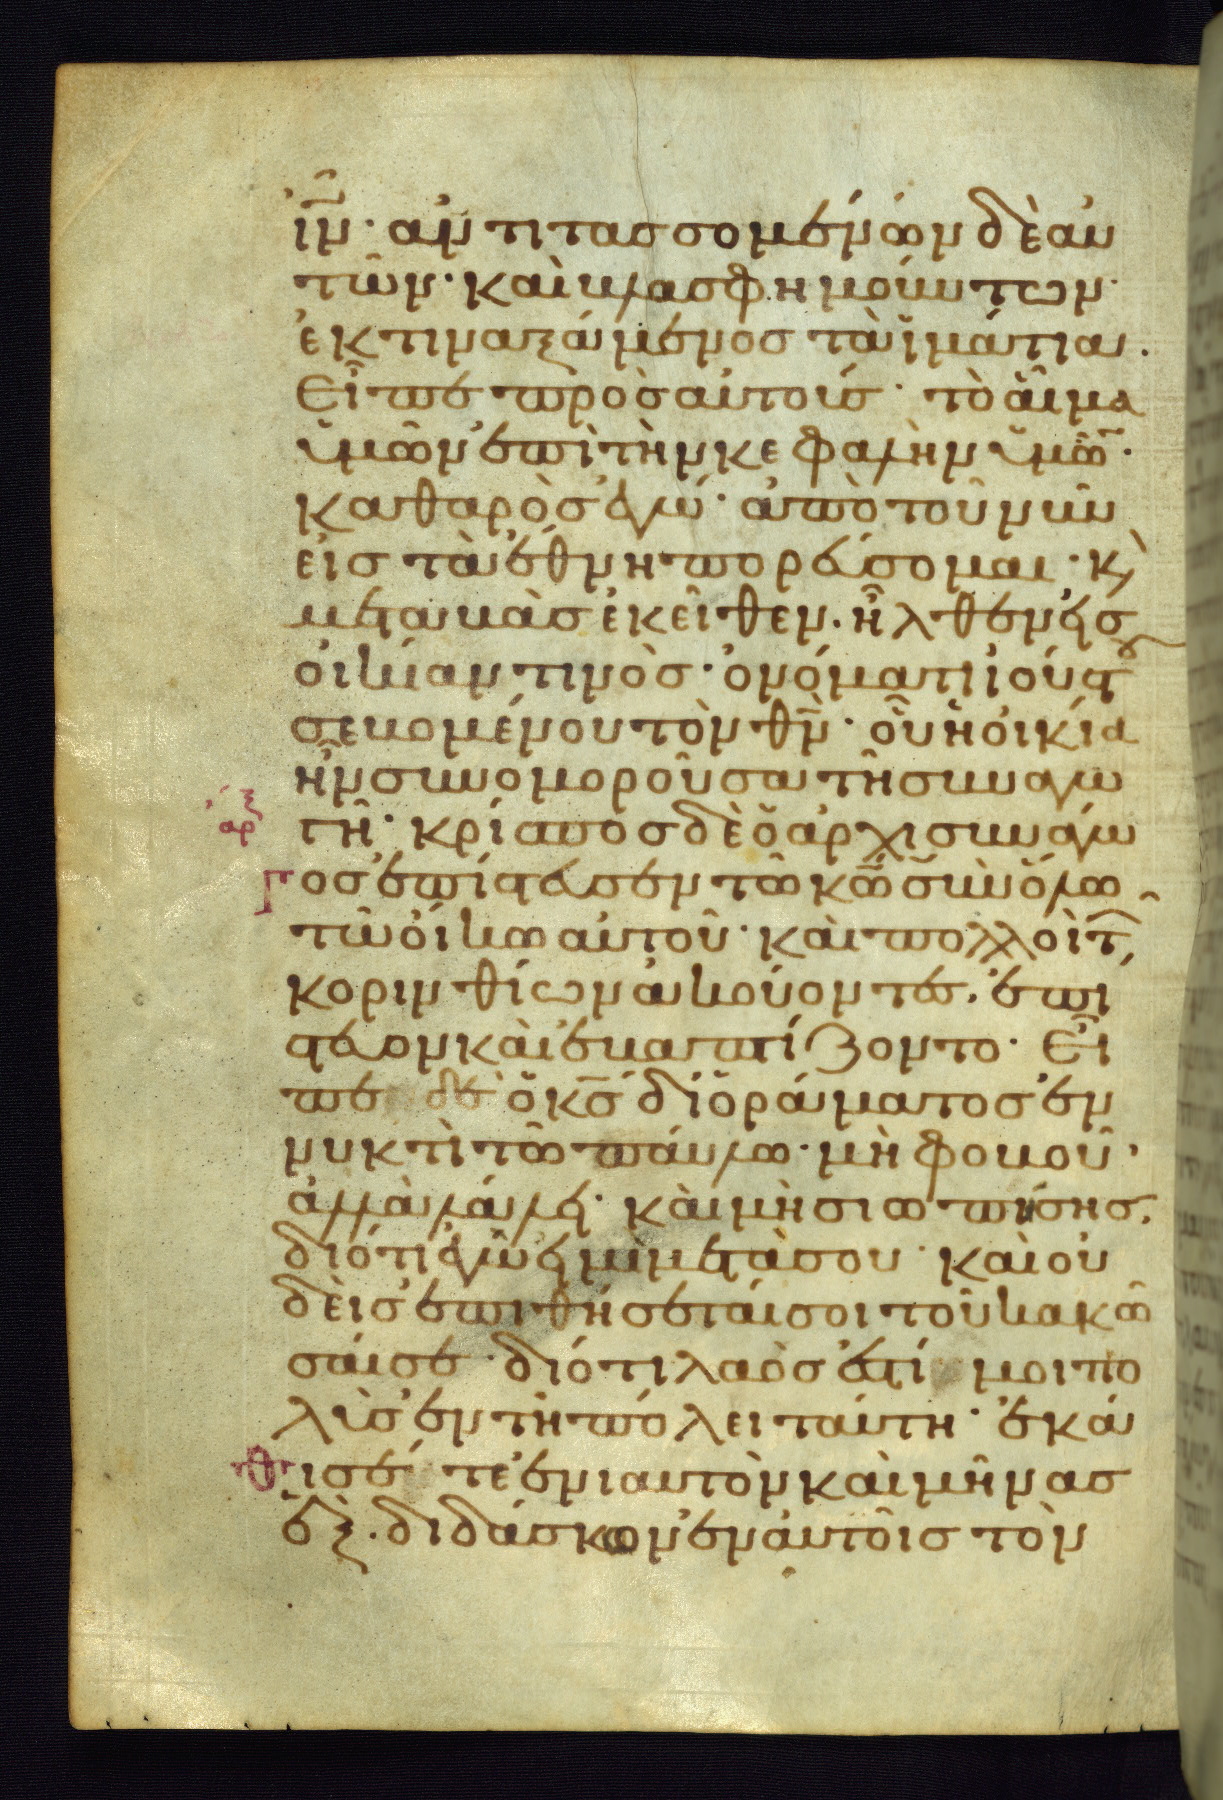 ἰν̅· ἀντιτασσομένων δὲ αὐ
τῶν· καὶ βλασφημούντων·
ἐκτιναξάμενος τὰ ἱμάτια.
Εἶπε πρὸς αὐτούς· τὸ αἷμα
ὑμῶν ἐπὶ τὴν κεφαλὴν ὑμῶ̅·
καθαρὸς ἐγώ· ἀπὸ τοῦ νῦν
εἰς τὰ ἔθνη πορεύσομαι· κ̀
μεταβὰς ἐκεῖθεν. ἦλθεν εἰς
οἰκίαν τινὸς· ὀνόματι ἰούστου
σεβομένου τὸν θν̅· οὗ ἡ οἰκία
ἦν συνομοροῦσα τῇ συναγω
γῇ· κρίσπος δὲ ὁ ἀρχισυνάγω
ἀρξ
γος ἐπίστευσεν τῶ κω̅ σὺν ὅλω
τῶ οἴκω αὐτοῦ· καὶ πολλοὶ τῶν
κορινθίων ἀκούοντες. ἐπί
στευον καὶ ἐβαπτίζοντο· Εἶ
πε δὲ ὁ κς̅ δι ὁράματος ἐν
νυκτὶ τῶ παύλω· μὴ φοβοῦ·
ἀλλὰ λάλει· καὶ μὴ σιωπήσης.
διότι ἐγώ εἰμι μετὰ σου· καὶ οὐ
δεὶς ἐπιθήσεταί σοι τοῦ κακῶ
σαί σε· διότι λαὸς ἐστί μοι πο
λὺς ἐν τῇ πόλει ταύτη· ἐκά
θισέ τε ἐνιαυτὸν καὶ μῆνας
ἓξ. διδάσκων ἐν αὐτοῖς τὸν